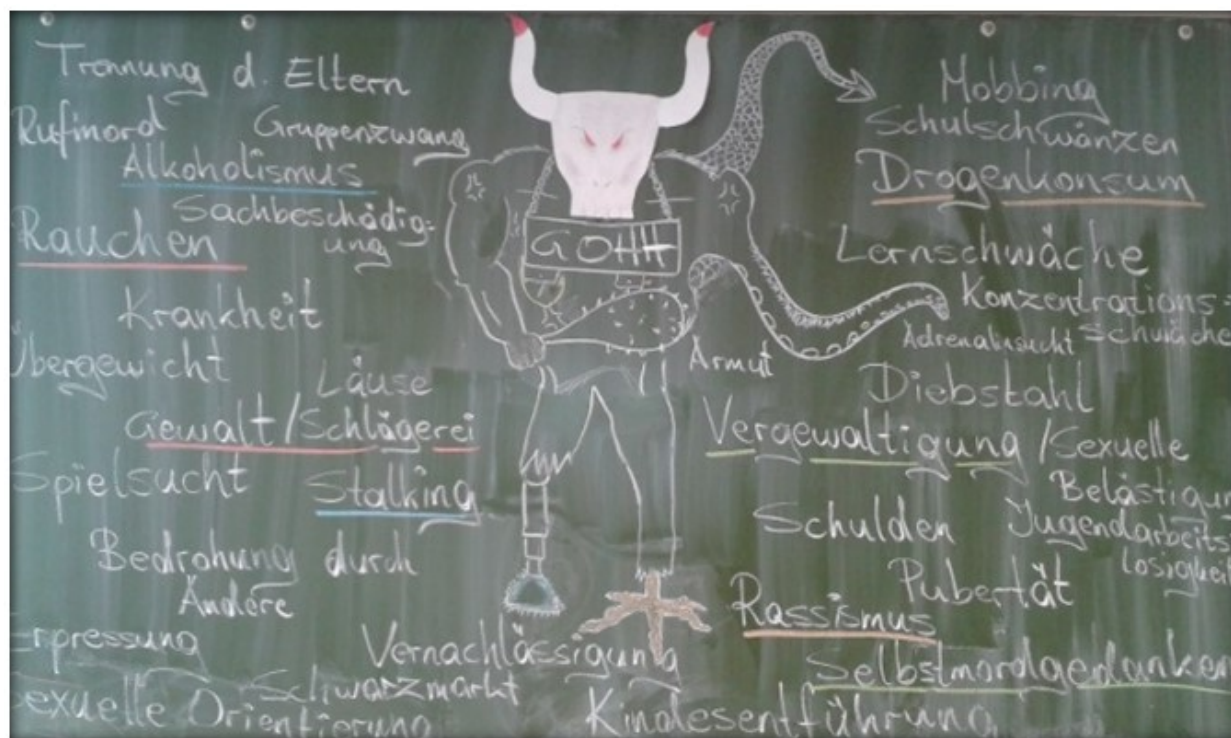 Trennung d. Eltern
Rufmord Gruppenzwang
Alkoholismus
Sachbeschädig-
ung
Rauchen
Krankheit
Übergewicht
Läuse
Gewalt/Schlägerei
Spielsucht
Stalking
Bedrohung durch
Andere
Erpressung
Vernachlässigung
Schwarzmarkt
Sexuelle Orientierung
Kindesentführung
Armut
Mobbing
Schulschwänzen
Drogenkonsum
Lernschwäche
Konzentrations-
schwäche
Adrenalinsucht
Diebstahl
Vergewaltigung/Sexuelle
Belästigu
Schulden
Jugendarbeits
losigkeit
Pubertät
Rassismus
Selbstmordgedanken